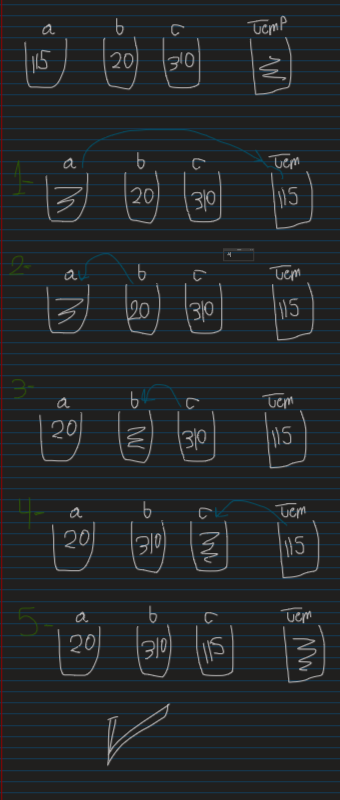 a b c TemP
115 20 310
1- a b c Tem
20 310 115
2- a b c Tem
20 310 115
3- a b c Tem
20 310 115
4- a b c Tem
20 310 115
5- a b c Tem
20 310 115